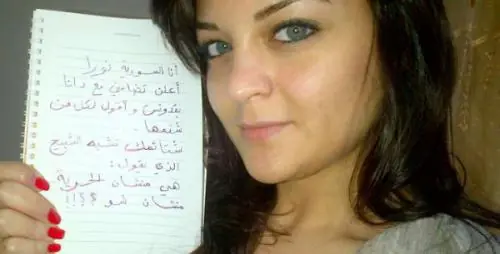 أنا السورية نورا
أعلن تضامني مع دانا
بقدونس و أقول لكل من
شتمها -
شتائمك تشبه الشبيح
الذي يقول :
هي منشان الحرية
منشان شو ؟؟!!!